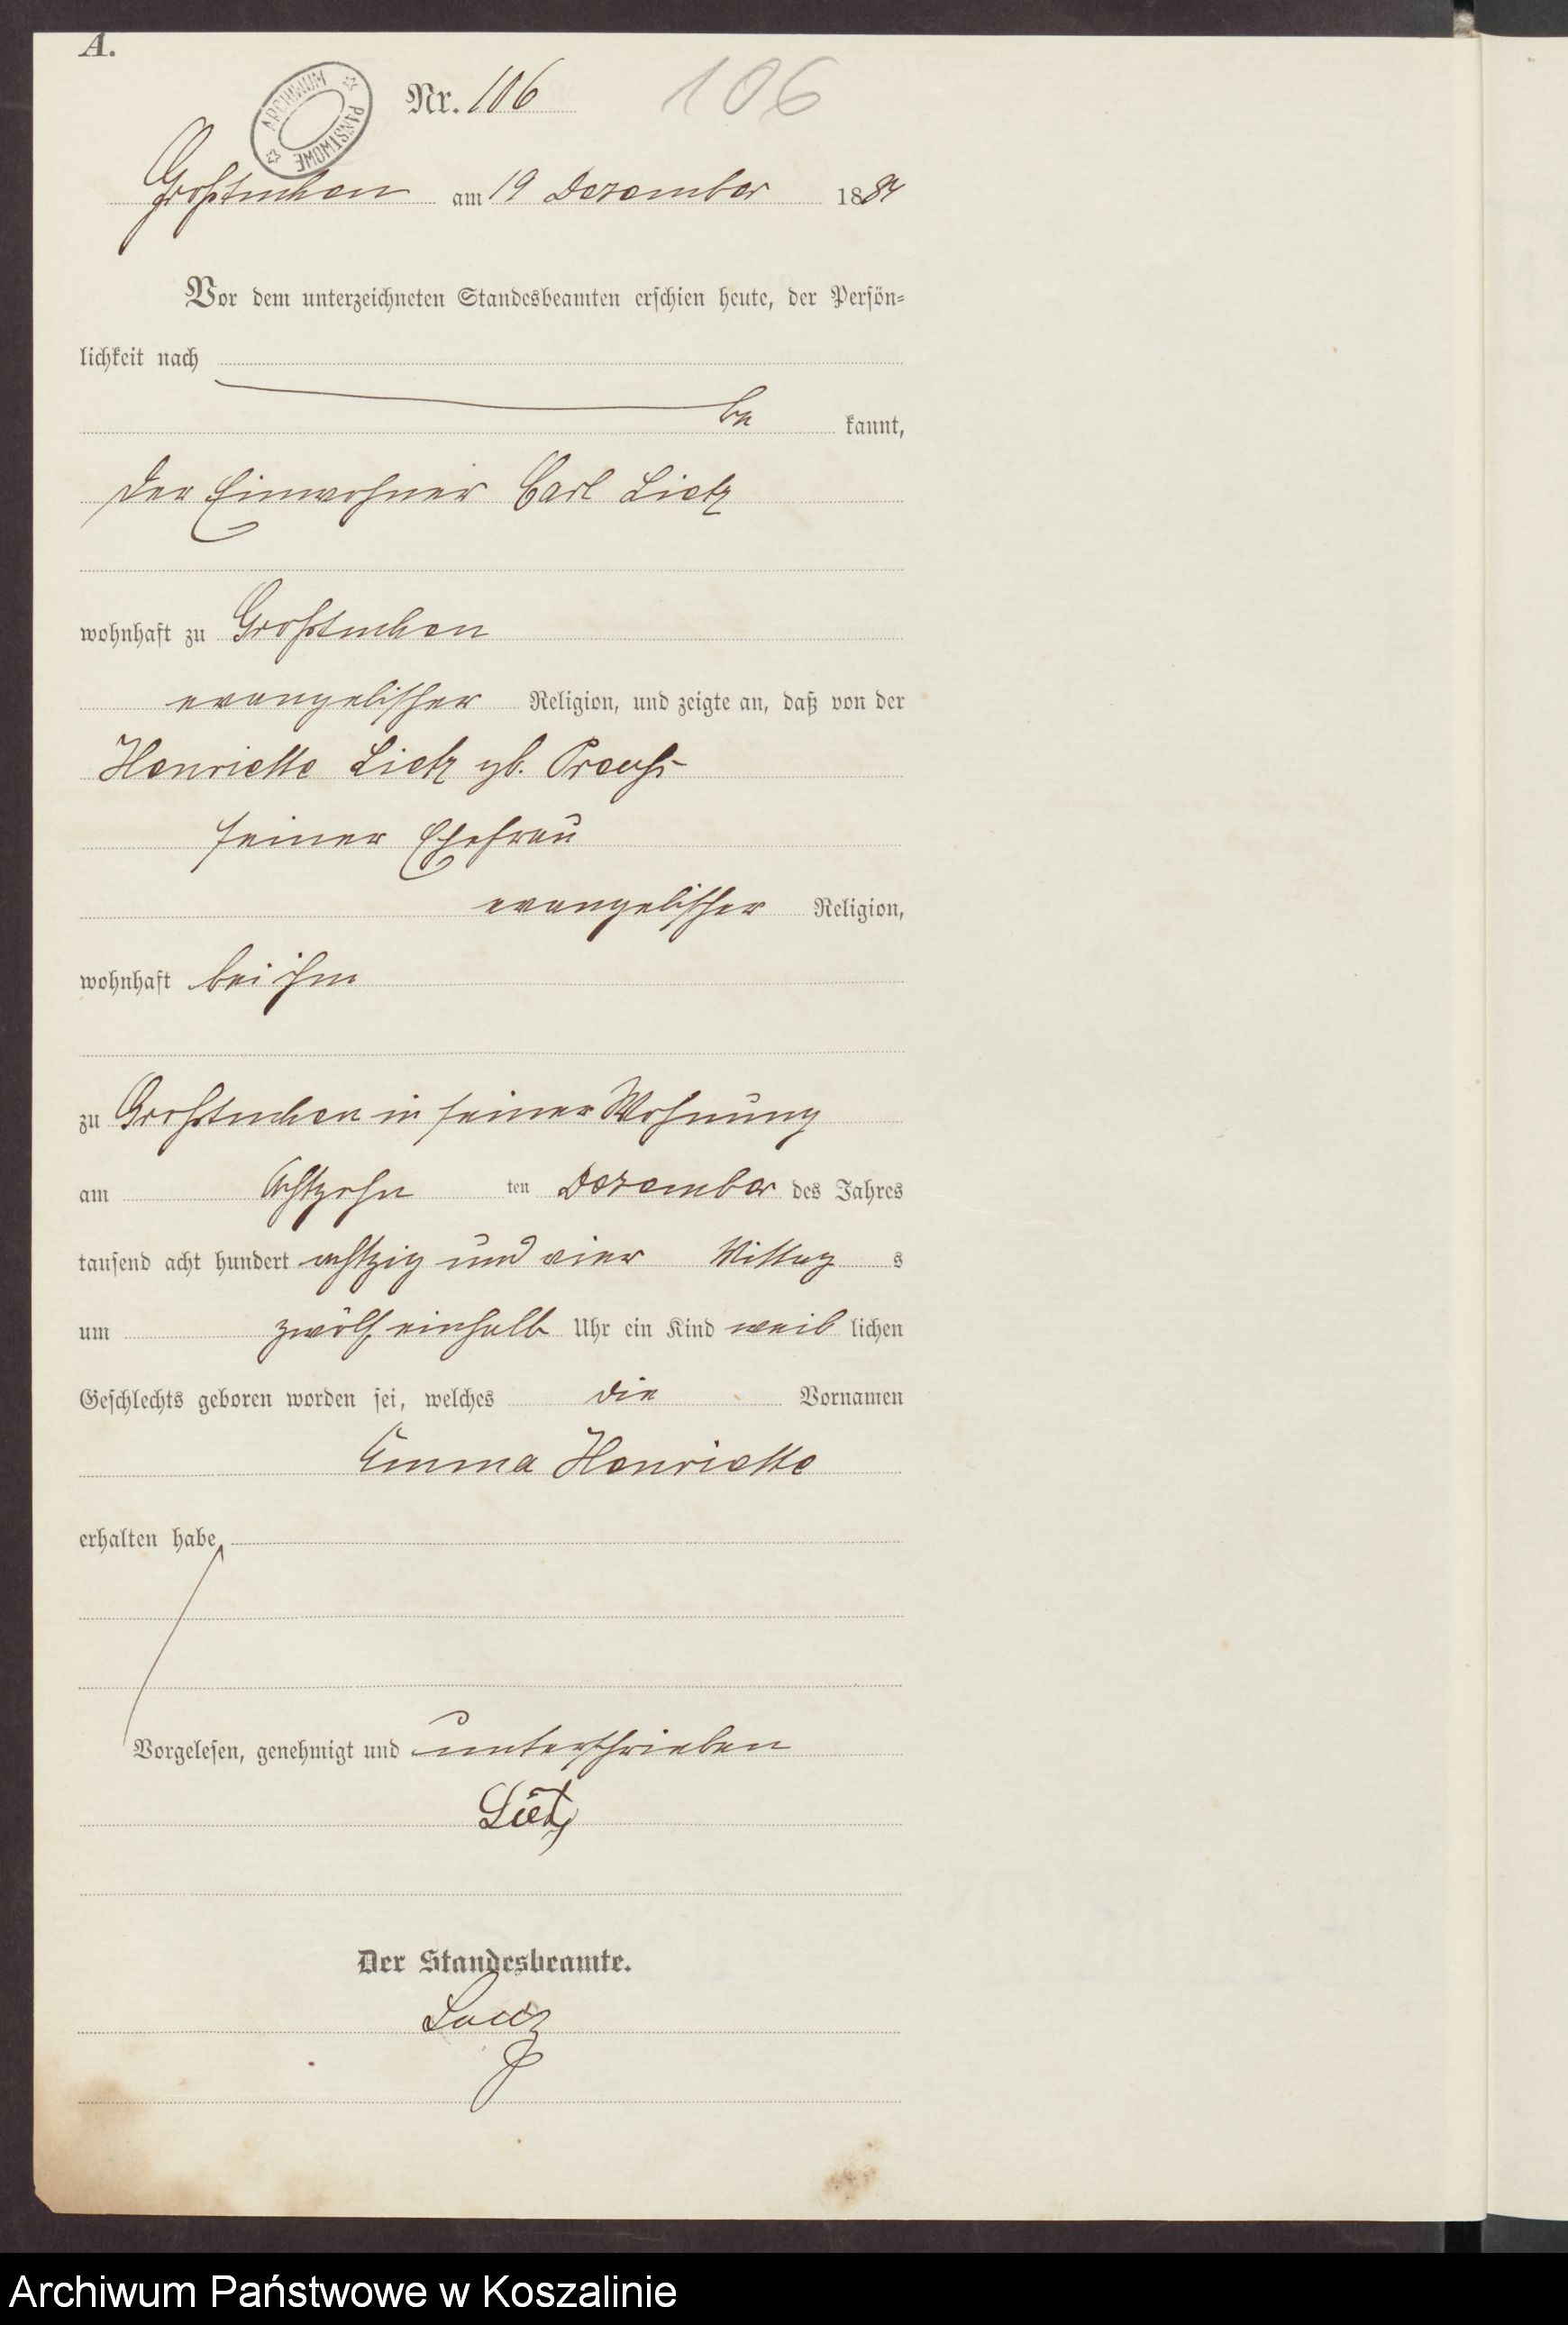 A.
ARCHIWUM PAŃSTWOWE
Nr. 106 106
Großtuchen am 19 Dezember 1884
Vor dem unterzeichneten Standesbeamten erschien heute, der Persön=
lichkeit nach
be kannt,
der Einwohner Carl Lietz
wohnhaft zu Großtuchen
evangelischer Religion, und zeigte an, daß von der
Henriette Lietz gb. Preuß
seiner Ehefrau
evangelischer Religion,
wohnhaft bei ihm
zu Großtuchen in seiner Wohnung
am achtzehn ten Dezember des Jahres
tausend acht hundert achtzig und vier Mittag s
um zwölf einhalb Uhr ein Kind weib lichen
Geschlechts geboren worden sei, welches die Vornamen
Emma Henriette
erhalten habe
Vorgelesen, genehmigt und unterschrieben
Lietz
Der Standesbeamte.
Archiwum Państwowe w Koszalinie